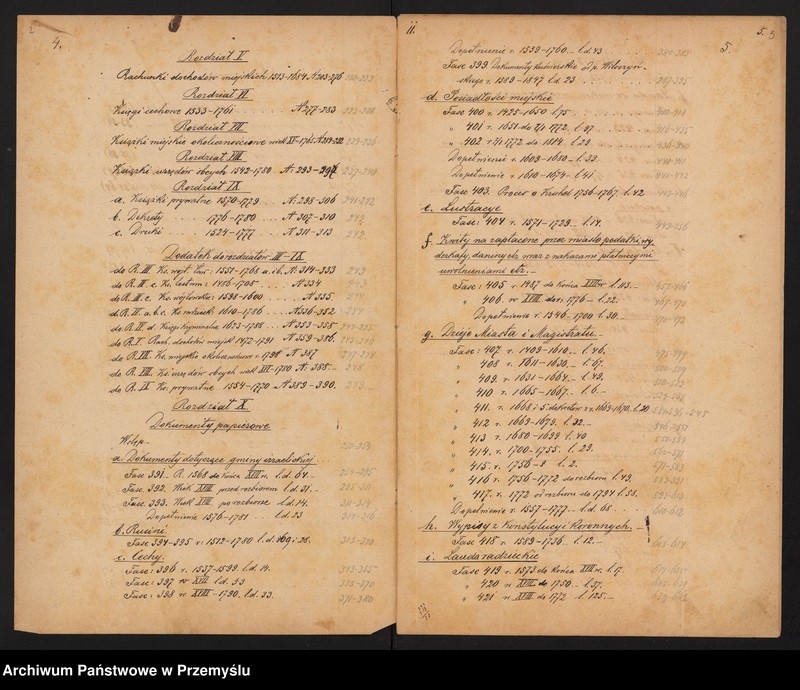 2
4.
Rozdział V
Rachunki dochodów miejskich 1513-1684 N. 203-276
Rozdział VI
Księgi cechowe 1533-1761 N. 277-283
Rozdział VII
Książki miejskie okolicznościowe wiek XV-1765
Rozdział VIII
Książki urzędów obcych 1542-1780 N. 293-297
Rozdział IX
a. Książki prywatne 1570-1779 N. 298-306
b. Dekrety 1776-1780 N. 307-310
c. Druki 1524-1777 N. 311-313
Dodatek do rozdziałów III-IX
do R. III. Ks. wójt. ław. 1551-1768 a. i b. N. 314-333
do R. II. c. Ks. testam: 1486-1705 N 334
do R. II. c. Ks. wójtowska: 1598-1600 N 335.
d. R. II. a. b. c. Ks. 1610-1786 N 336-352
do R. II d. Księgi kryminalne 1625-1788 N 353-358
do R. V. Rach. dochodów miejsk 1472-1791 N 359-386.
do R. VII. Ks. miejskie r. 1798 N 387
do R. VIII. Ks. urzędów obcych wiek XVI-1780 N. 388.
do R. IX Ks. prywatne 1554-1770 N 389-390.
Rozdział X.
Dokumenty papierowe
Wstęp
a. Dokumenty dotyczące gminy izraelickiej
Fasc 391. R. 1568 do końca XVII w. l. d. 64.
Fasc. 392. Wiek XVIII przed rozbiorem l. d. 31.
Fasc. 393. Wiek XVIII po rozbiorze l. d. 14.
Dopełnienie 1576-1781 l. d. 23
b. Rusini.
Fasc 394-395 r. 1512-1780 l. d. 169 i 26.
c. Cechy.
Fasc: 396 r. 1537-1599. l. d. 14.
Fasc: 397 w XVII l. d. 93
Fasc: 398 w XVIII-1790. l. d. 33.
II.
5.
5.
Dopełnienie r. 1539-1760. l. d. 43
Fasc 399. Dokumenty kuśnierskie od p.
r. 1389-1847 l. d. 23
d. Posiadłości miejskie
Fasc 400 r. 1425-1650 l. 75
" 401 r. 1651 do 1772. l. 97
" 402 r. 1772 do 1814. l. 29
Dopełnienie r. 1609-1650 l. 33.
Dopełnienie r. 1610-1674 l. 41
Fasc 403. Proces o Kruhel 1756-1767. l. 42
e. Lustracye
Fasc: 404 r. 1571-1729. l. 14.
f. Kwity na zapłacone przez miasto podatki, wy
derkafy, daniny etc wraz z nakazami płatniczymi
uwolnieniami etc.
Fasc: 405 r. 1487 do końca XVII w l. 113.
" 406 w XVIII do r. 1776 l. 22.
Dopełnienie r. 1546-1700 l. 30.
g. Dzieje Miasta i Magistratu.
Fasc: 407 r. 1409-1610. l. 46.
" 408 r. 1611-1630. l. 67.
" 409. r. 1631-1664. l. 49.
" 410 r. 1665-1667. l. 6.
" 411. r. 1668 i 5 dekretów z r. 1669-1670. l. 20
" 412 r. 1669-1679. l. 32.
" 413 r. 1680-1699 l. 40
" 414. r. 1700-1755. l. 29.
" 415. r. 1756-8 l. 2.
" 416 r. 1756-1772 do rozbioru l. 49.
" 417. r. 1772 od rozbioru do 1794 l. 58.
Dopełnienie r. 1557-1777. l. d. 68
h. Wypisy z Konstytucyi Koronnych.
Fasc 418 r. 1589-1736. l. 12.
i. Lauda radzieckie
Fasc 419 r. 1573 do końca XVII w. l. 17.
" 420 w XVIII do 1750. l. 37.
" 421 w XVIII do 1772 l. 125.
Archiwum Państwowe w Przemyślu